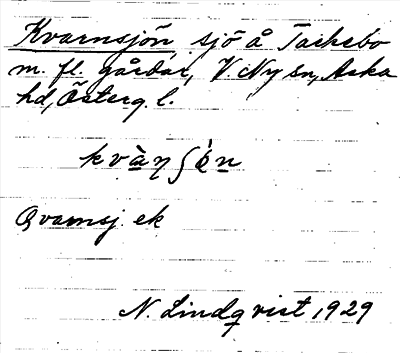 Kvarnsjön, sjö å Tackebo
m. fl. gårdar, V. Ny sn, Aska
hd, Österg. l.
kvàŋʃö́n
Qvarnsj. ek
N. Lindqvist 1929